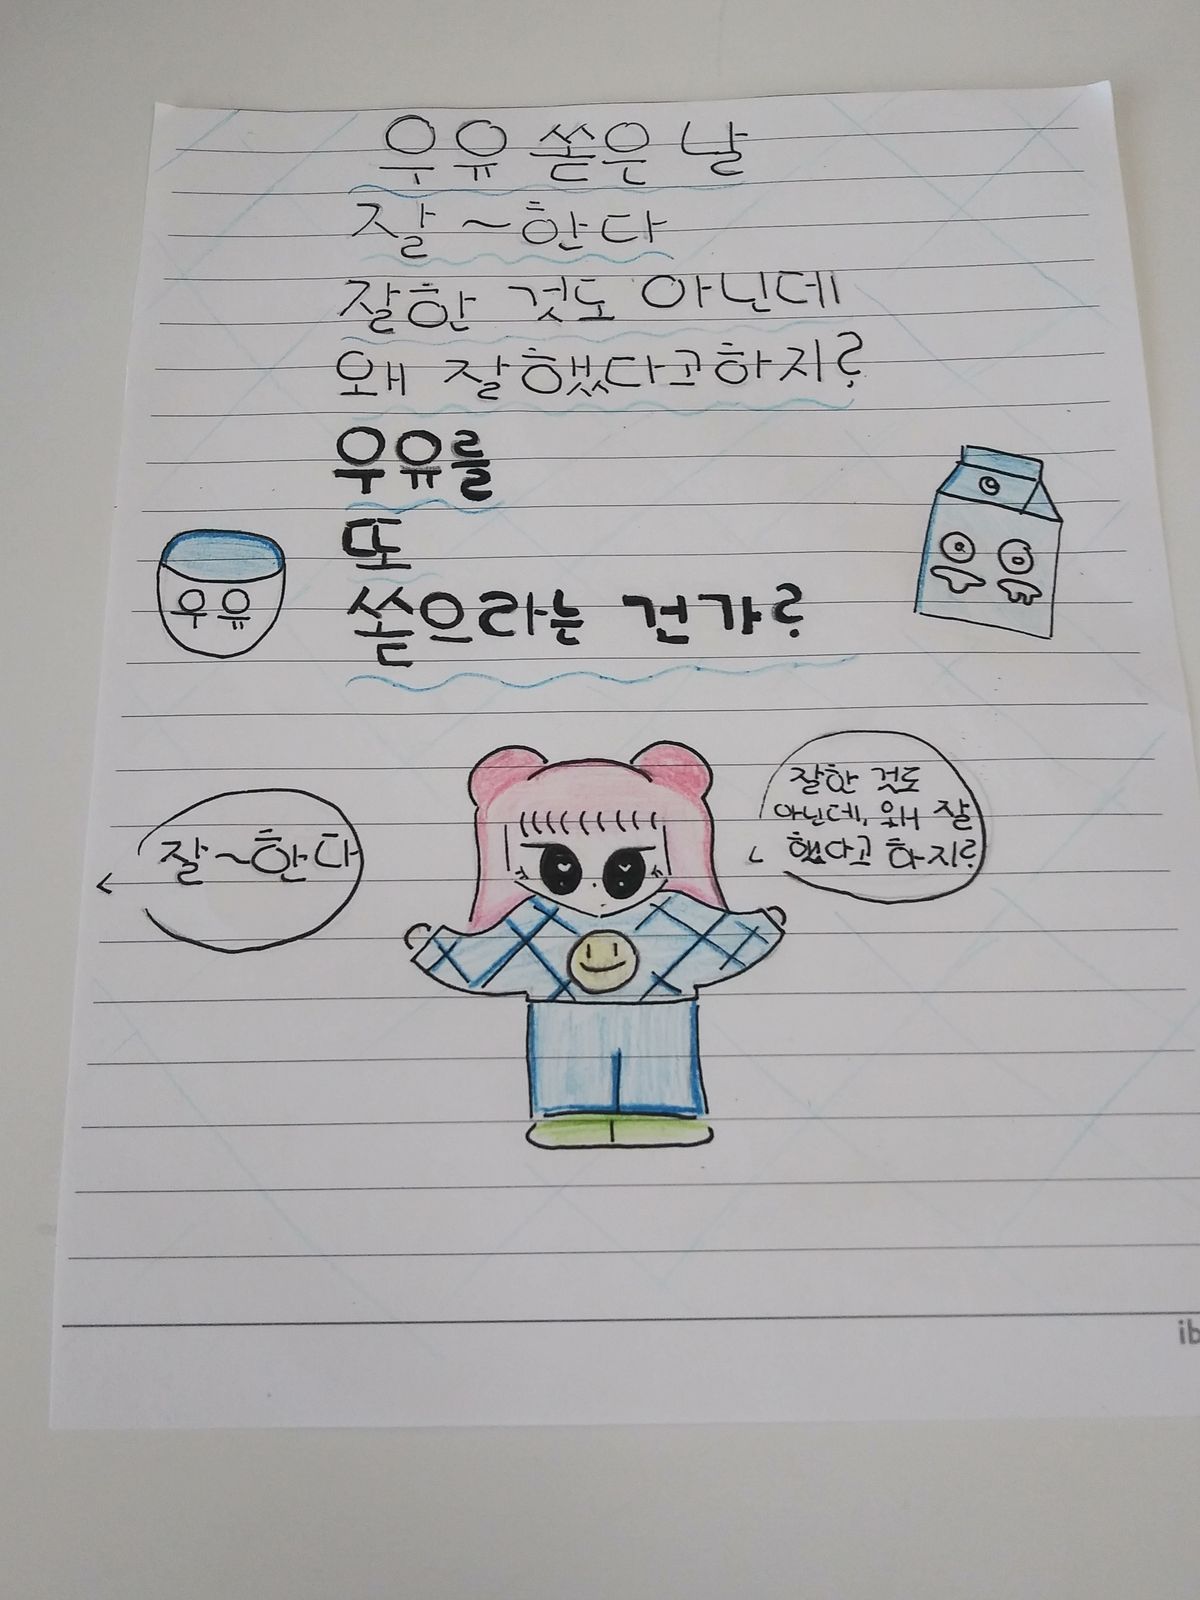 우유 쏟은 날
잘~한다
잘한 것도 아닌데
왜 잘했다고하지?
우유를
또
쏟으라는 건가?
우유
잘~한다
잘한 것도
아닌데, 왜 잘
했다고 하지?
ib